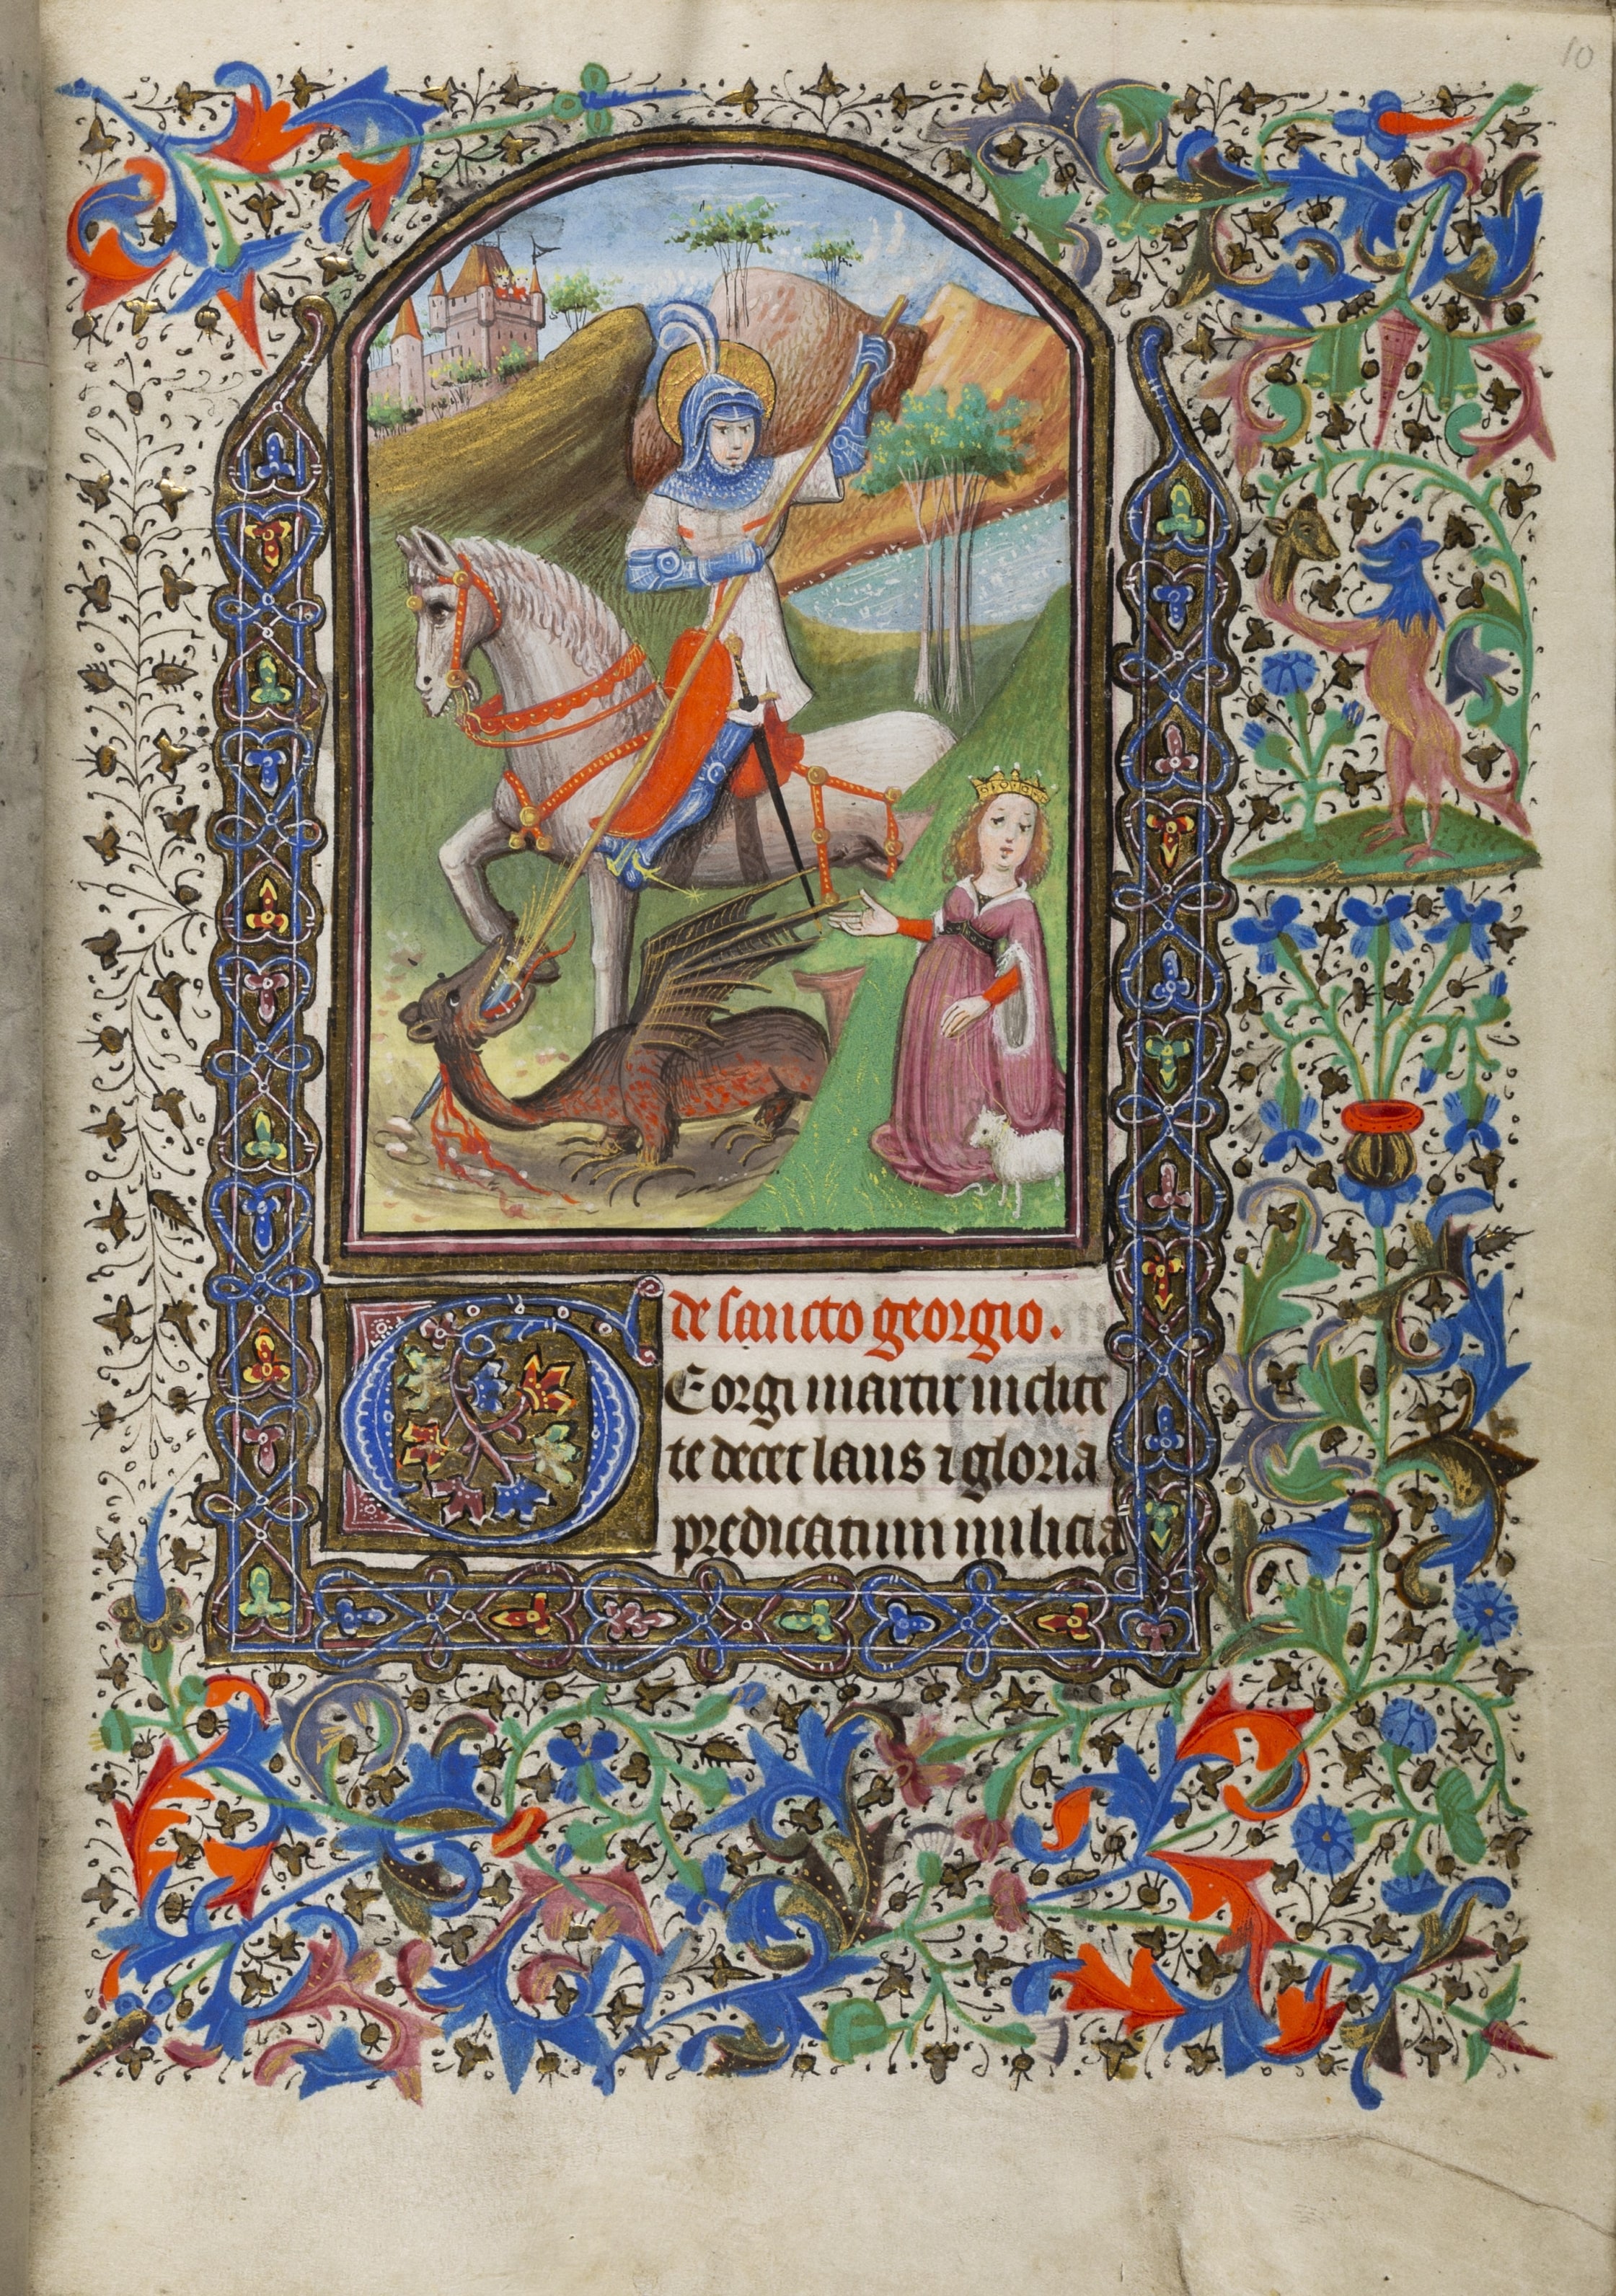 10
de sancto georgio.
GEorgi martir inclite
te decet laus ⁊ gloria
predicatum milicia